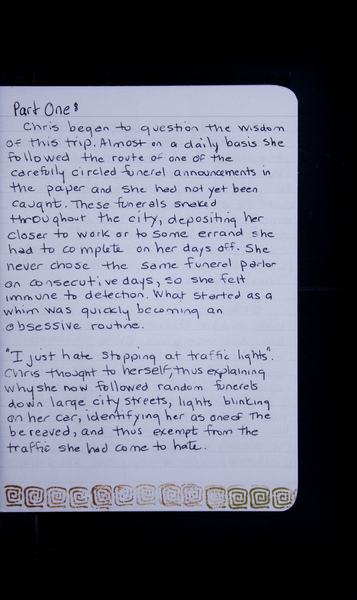 Part One:
Chris began to question the wisdom
of this trip. Almost on a daily basis she
followed the route of one of the
carefully circled funeral announcements in
the paper and she had not yet been
caught. These funerals snaked
throughout the city, depositing her
closer to work or to some errand she
had to complete on her days off. She
never chose the same funeral parlor
on consecutive days, so she felt
immune to detection. What started as a
whim was quickly becoming an
obsessive routine.
"I just hate stopping at traffic lights".
Chris thought to herself, thus explaining
why she now followed random funerals
down large city streets, lights blinking
on her car, identifying her as one of the
bereaved, and thus exempt from the
traffic she had come to hate.